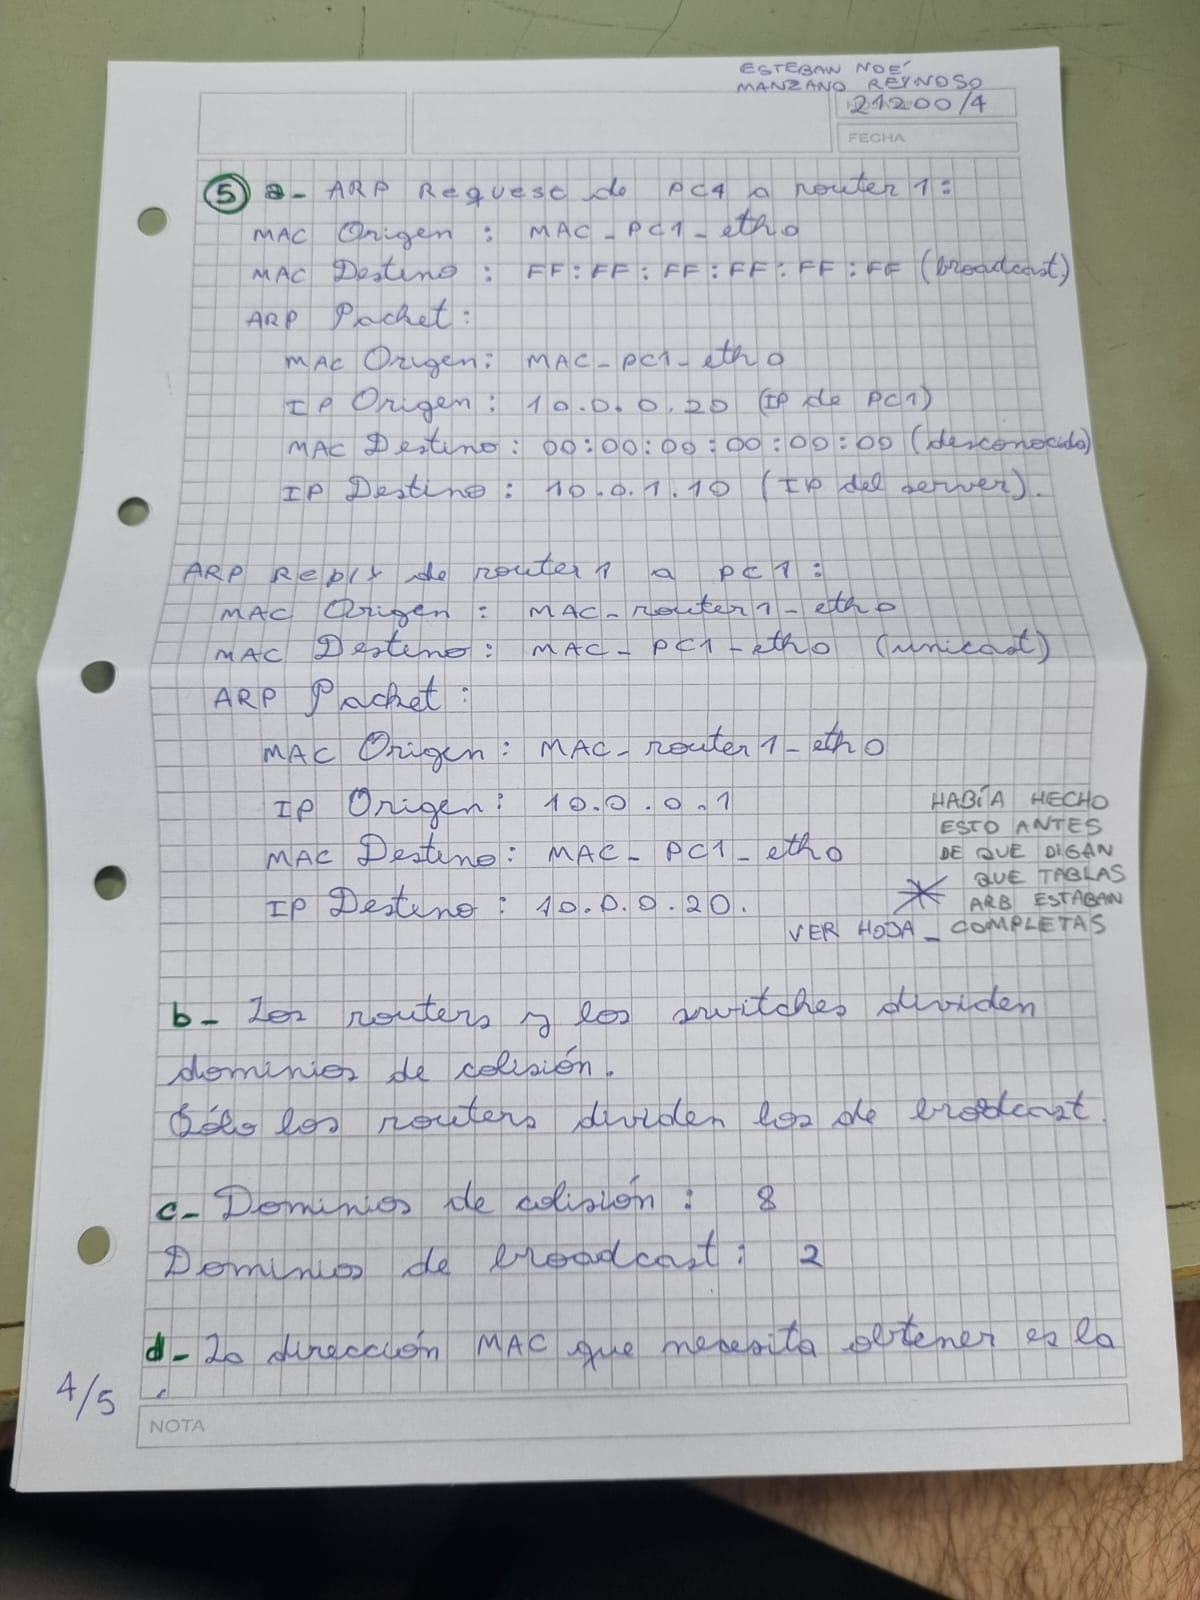 ESTEBAN NOÉ
MANZANO REYNOSO
21200/4
FECHA
5 a- ARP Request de PC1 a router 1:
MAC Origen: MAC-PC1-eth0
MAC Destino: FF:FF:FF:FF:FF:FF (broadcast)
ARP Packet:
MAC Origen: MAC-PC1-eth0
IP Origen: 10.0.0.20 (IP de PC1)
MAC Destino: 00:00:00:00:00:00 (desconocido)
IP Destino: 10.0.1.10 (IP del server).
ARP Reply de router 1 a PC1:
MAC Origen: MAC-router1-eth0
MAC Destino: MAC-PC1-eth0 (unicast)
ARP Packet:
MAC Origen: MAC-router1-eth0
IP Origen: 10.0.0.1
MAC Destino: MAC-PC1-eth0
IP Destino: 10.0.0.20.
HABÍA HECHO
ESTO ANTES
DE QUE DIGAN
QUE TABLAS
* ARB ESTABAN
VER HOJA - COMPLETAS
b- Los routers y los switches dividen
dominios de colisión.
Sólo los routers dividen los de broadcast.
c- Dominios de colisión: 8
Dominios de broadcast: 2
d- La dirección MAC que necesita obtener es la
4/5
NOTA